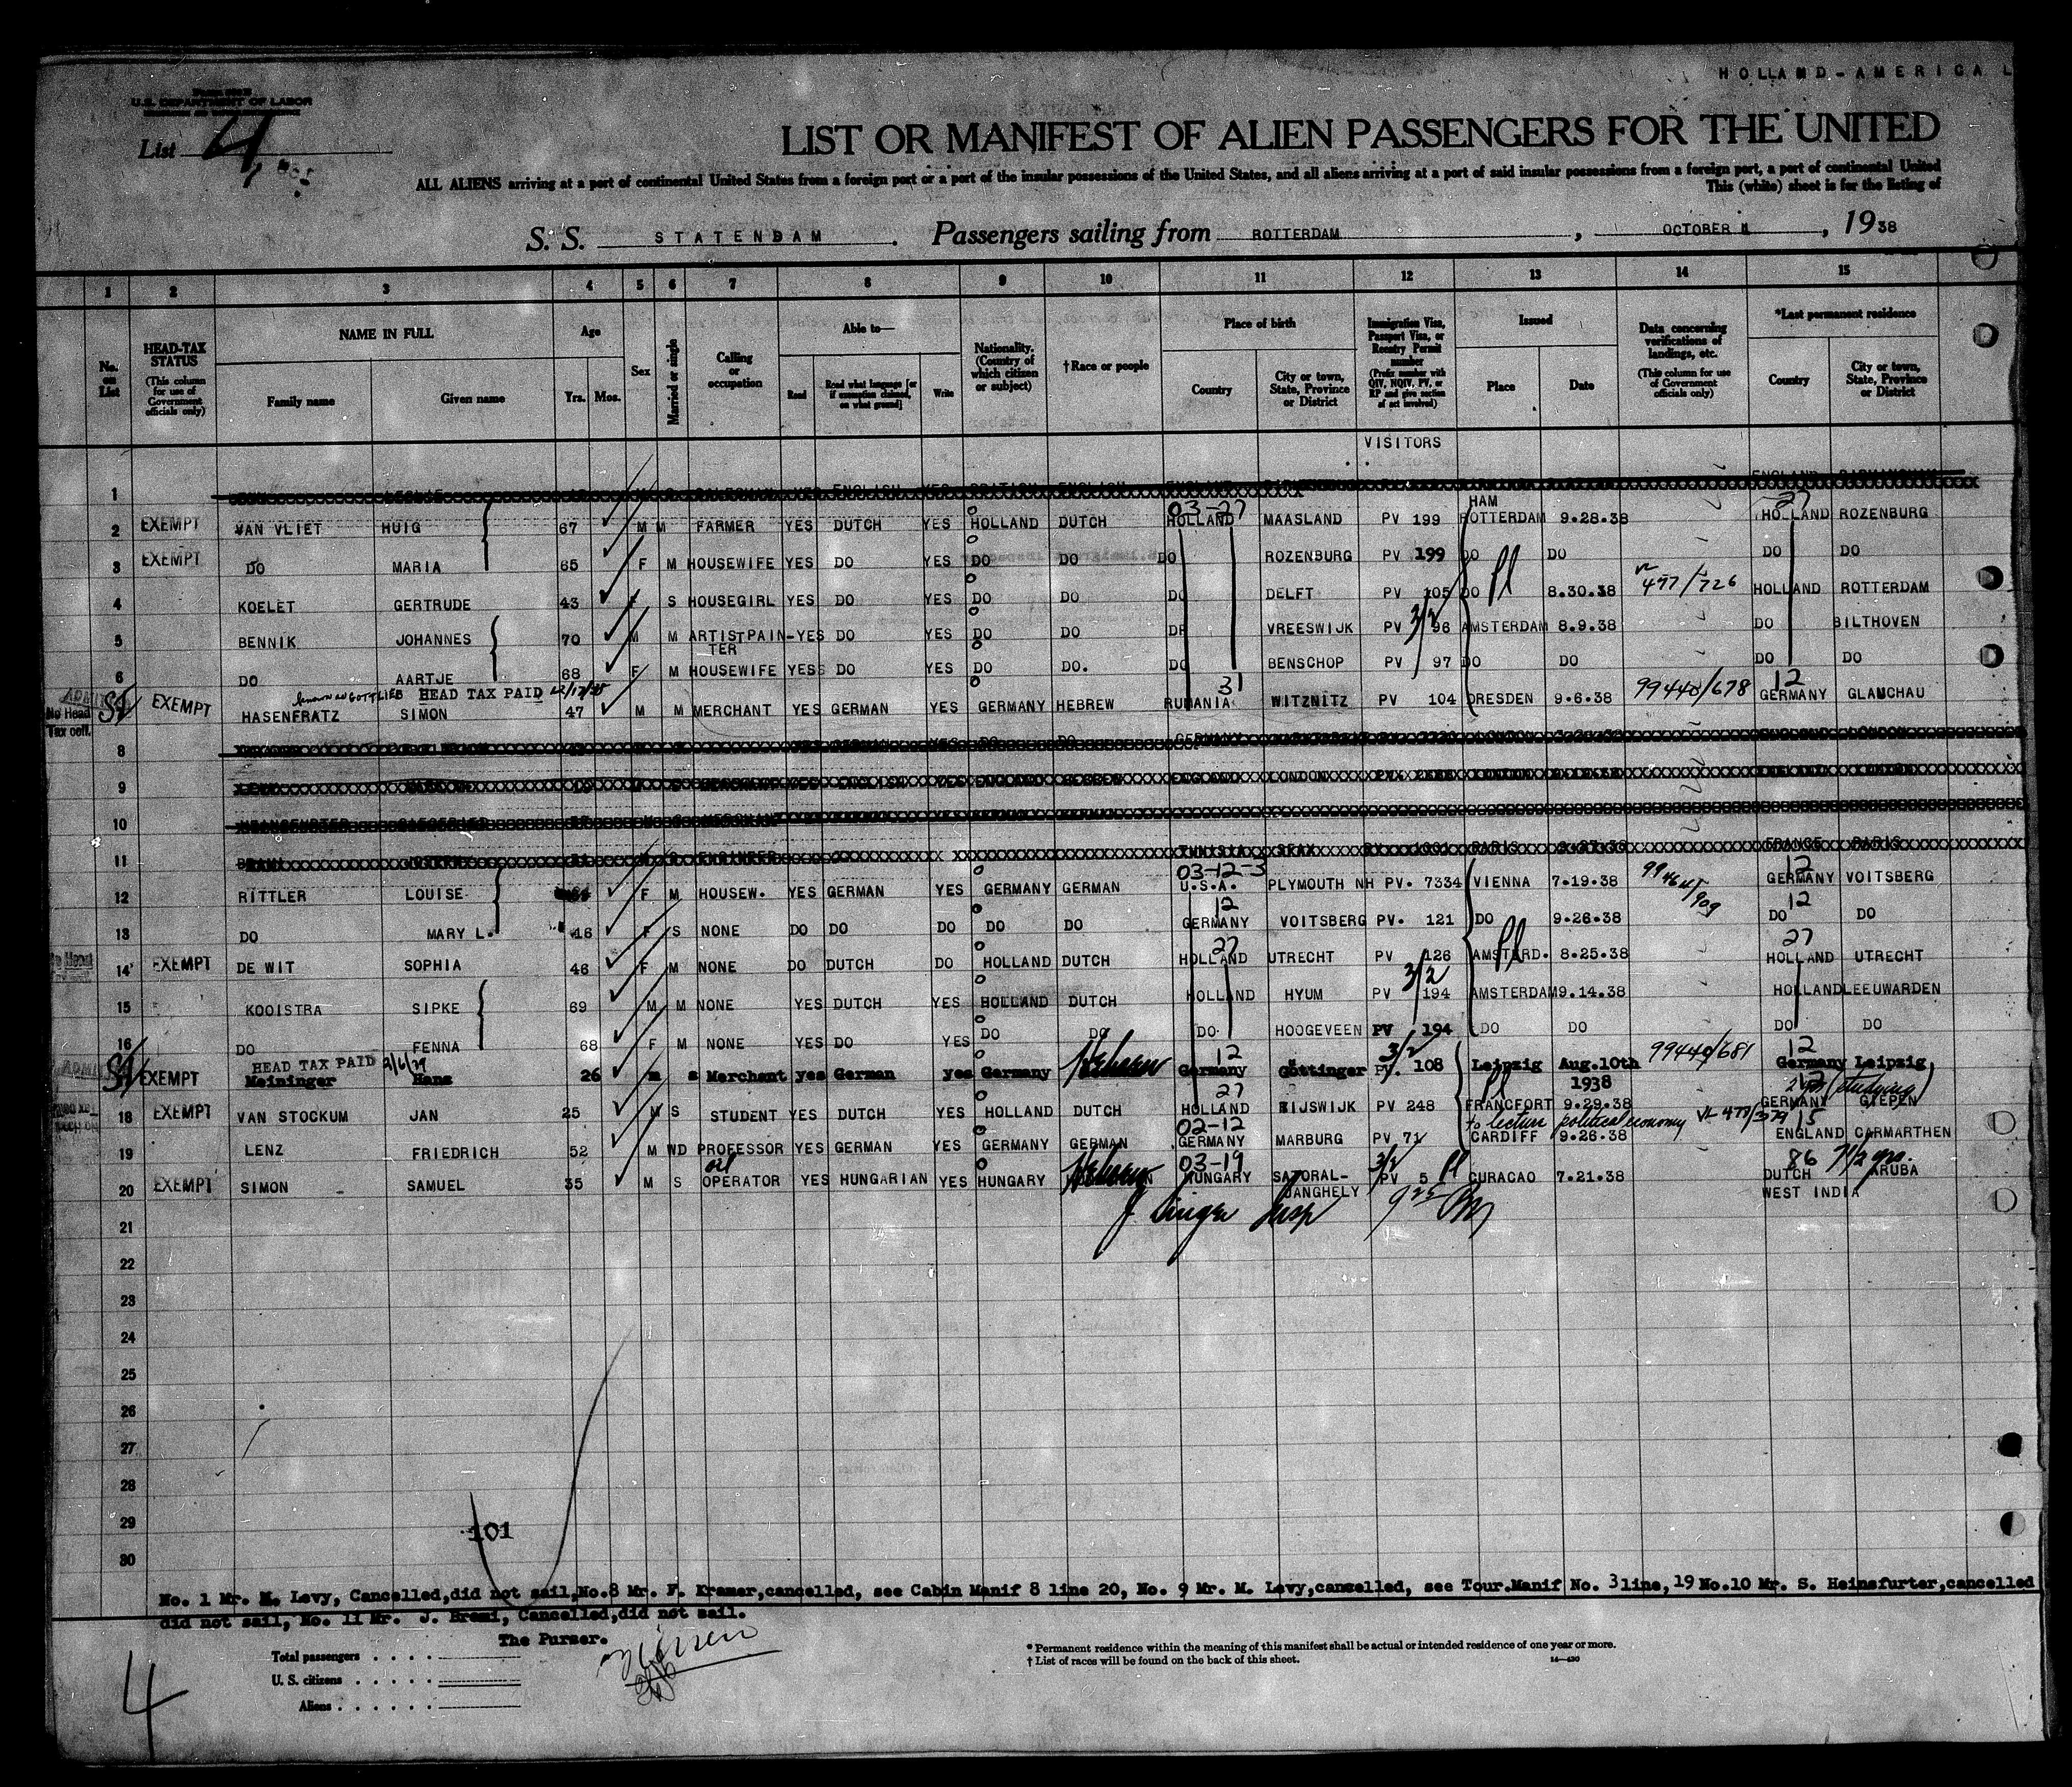 HOLLAND-AMERICA L
U.S. DEPARTMENT OF LABOR
List 4
LIST OR MANIFEST OF ALIEN PASSENGERS FOR THE UNITED
ALL ALIENS arriving at a port of continental United States from a foreign port or a port of the insular possessions of the United States, and all aliens arriving at a port of said insular possessions from a foreign port, a port of continental United
This (white) sheet is for the listing of
S. S. STATENDAM. Passengers sailing from ROTTERDAM, OCTOBER, 1938
1 2 3 4 5 6 7 8 9 10 11 12 13 14 15
No. on List
HEAD-TAX STATUS (This column for use of Government officials only)
NAME IN FULL
Family name Given name
Age
Yrs. Mos.
Sex
Married or single
Calling or occupation
Able to—
Read Read what language [or if exemption claimed, on what ground] Write
Nationality. (Country of which citizen or subject)
†Race or people
Place of birth
Country City or town, State, Province or District
Immigration Visa, Passport Visa, or Reentry Permit number (Prefix number with QIV, NQIV, PV, or RP and give section of act involved)
Issued
Place Date
Data concerning verifications of landings, etc. (This column for use of Government officials only)
*Last permanent residence
Country City or town, State, Province or District
VISITORS
1
HAM
03-27 27
2 EXEMPT VAN VLIET HUIG 67 M M FARMER YES DUTCH YES HOLLAND DUTCH HOLLAND MAASLAND PV 199 ROTTERDAM 9.28.38 HOLLAND ROZENBURG
3 EXEMPT DO MARIA 65 F M HOUSEWIFE YES DO YES DO DO DO ROZENBURG PV 199 DO DO DO DO
4 KOELET GERTRUDE 43 F S HOUSEGIRL YES DO YES DO DO DO DELFT PV 105 DO 8.30.38 477/726 HOLLAND ROTTERDAM
5 BENNIK JOHANNES 70 M M ARTIST PAIN- YES DO YES DO DO DO VREESWIJK PV 96 AMSTERDAM 8.9.38 DO BILTHOVEN
TER 3/2
6 DO AARTJE 68 F M HOUSEWIFE YES DO YES DO DO. DO BENSCHOP PV 97 DO DO DO DO
HEAD TAX PAID 31 12
No Head Tax coll. EXEMPT HASENFRATZ SIMON 47 M M MERCHANT YES GERMAN YES GERMANY HEBREW RUMANIA WITZNITZ PV 104 DRESDEN 9.6.38 99440/678 GERMANY GLAUCHAU
8
9
10
11
03-12-3 12
12 RITTLER LOUISE F M HOUSEW. YES GERMAN YES GERMANY GERMAN U.S.A. PLYMOUTH NH PV. 7334 VIENNA 7.19.38 GERMANY VOITSBERG
12 12
13 DO MARY L. 18 F S NONE DO DO DO DO DO GERMANY VOITSBERG PV. 121 DO 9.26.38 DO DO
27 27
14 EXEMPT DE WIT SOPHIA 46 F M NONE DO DUTCH DO HOLLAND DUTCH HOLLAND UTRECHT PV 126 AMSTERD. 8.25.38 HOLLAND UTRECHT
3/2
15 KOOISTRA SIPKE 69 M M NONE YES DUTCH YES HOLLAND DUTCH HOLLAND HYUM PV 194 AMSTERDAM 9.14.38 HOLLAND LEEUWARDEN
16 DO FENNA 68 F M NONE YES DO YES DO DO DO HOOGEVEEN PV 194 DO DO DO DO
HEAD TAX PAID 2/6/39 12 3/2 12
EXEMPT Meininger Hans 26 m s Merchant yes German yes Germany Hebrew Germany Göttinger PV. 108 Leipzig Aug.10th 1938 99440/681 Germany Leipzig
27 (studying)
18 EXEMPT VAN STOCKUM JAN 25 M S STUDENT YES DUTCH YES HOLLAND DUTCH HOLLAND RIJSWIJK PV 248 FRANCFORT 9.29.38 GERMANY GIEPEN
02-12 to lecture political economy 15
19 LENZ FRIEDRICH 52 M WD PROFESSOR YES GERMAN YES GERMANY GERMAN GERMANY MARBURG PV 71 CARDIFF 9.26.38 ENGLAND CARMARTHEN
oil 03-19 3/2 86 7 1/2 yrs.
20 EXEMPT SIMON SAMUEL 35 M S OPERATOR YES HUNGARIAN YES HUNGARY Hebrew HUNGARY SATORAL-UJANGHELY PV 5 CURACAO 7.21.38 DUTCH WEST INDIA ARUBA
21
22
23
24
25
26
27
28
29
30
101
No. 1 Mr. M. Levy, Cancelled,did not sail,No.8 Mr. F. Kramer,cancelled, see Cabin Manif 8 line 20, No. 9 Mr. M. Levy,cancelled, see Tour.Manif No. 3 line, 19 No.10 Mr. S. Heinsfurter,cancelled
did not sail, No. 11 Mr. J. Brami, Cancelled,did not sail.
The Purser.
Total passengers
U. S. citizens
Aliens
* Permanent residence within the meaning of this manifest shall be actual or intended residence of one year or more.
† List of races will be found on the back of this sheet.
4